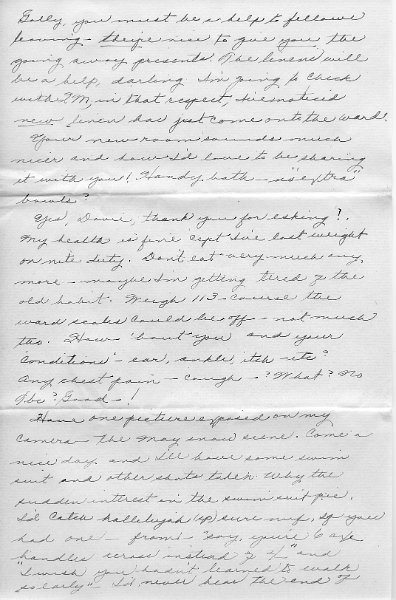 Golly, you must be a help to fellows
leaving - they're nice to give you the
going away presents. The linens will
be a help, darling. I'm going to check
with T.M. in that respect, I've noticed
new linen has just come onto the ward.
Your new room sounds much
nicer and how I'd love to be sharing
it with you! Handy bath - "as extra"
bowls?
Yes, Dowie, thank you for asking!.
My health is fine 'cept I've lost weight
on nite duty. Don't eat very much any
more - maybe I'm getting tired of the
old habit. Weigh 113 - course the
ward scales could be off - not much
too. How 'bout you and your
condition - ear, ankle, itch - etc?
Any chest pain - cough - ? What? No
Tbc? Good - !
Have one picture exposed on my
camera - the May snow scene. Come a
nice day and I'll have some swim
suit and other shots taken. Why the
sudden interest in the swim suit pic.
I'd catch hallelujah (sp) sure nuf, if you
had one - from - "say, you're 6 axe
handles across instead of 4" and
"I wish you hadn't learned to walk
so early" - I'd never hear the end of